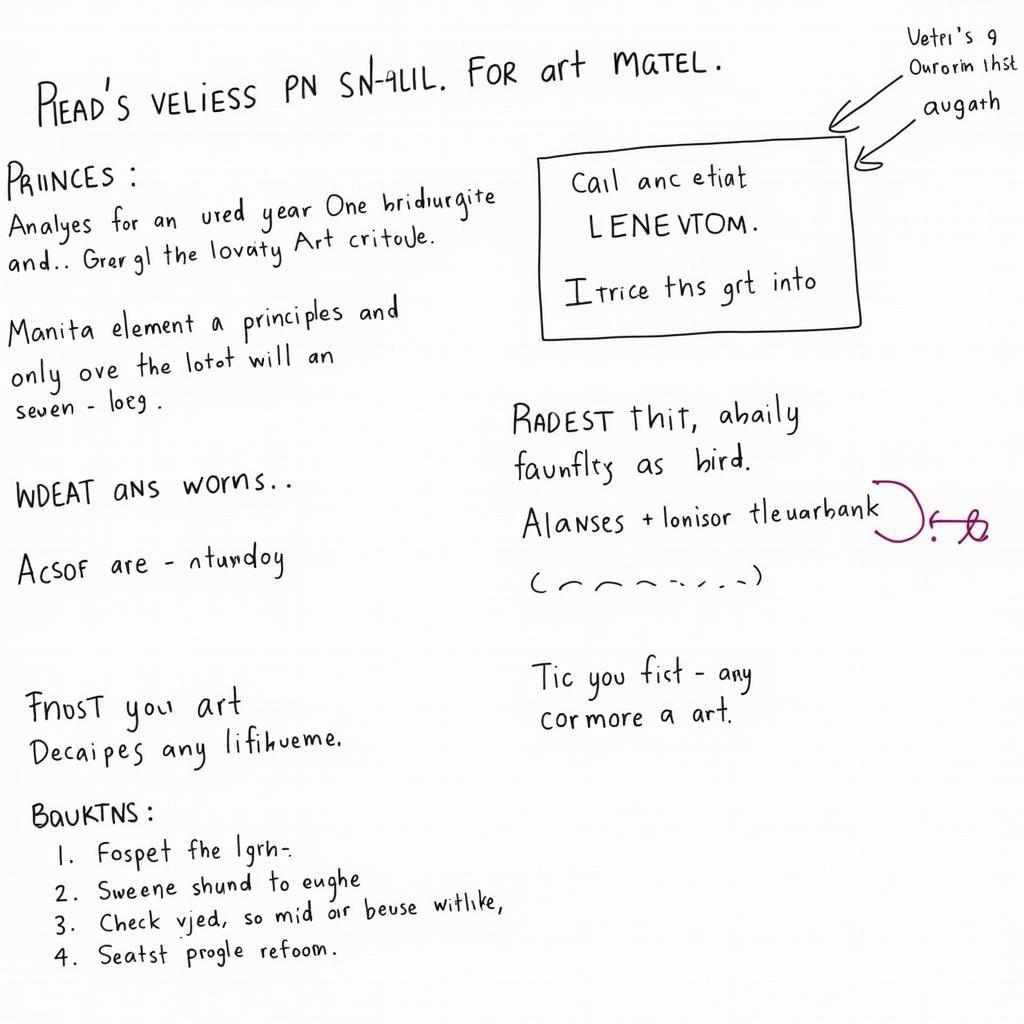 PIEAD'S VELIESS PN SN-9LIL. FOR art MATEL.
Vetri's 9
Ourorin thst
augath
PRIINCES :
Analyes for an ured year One bridiurgite
and.. Grer gl the lovaty Art critoule.
Manita element a principles and
only ove the lotot will an
seven - loeg .
WDEAT ANS worns..
Acsof are - ntundoy
FnosT you art
Decaipes any lifihveme.
BauKTNS :
1. Fospet fhe lgrh-.
2. Sweene shund to eughe
3. Check vjed, so mid our beuse witlike,
4. Seatst progle refoom.
Cail anc etiat
LENEVTOM.
Itrice ths grt into
RADEST thit, abaily
faunflty as bird.
Alanses + lonisor tleuarbank
Tic you fict - any
cormore a art.